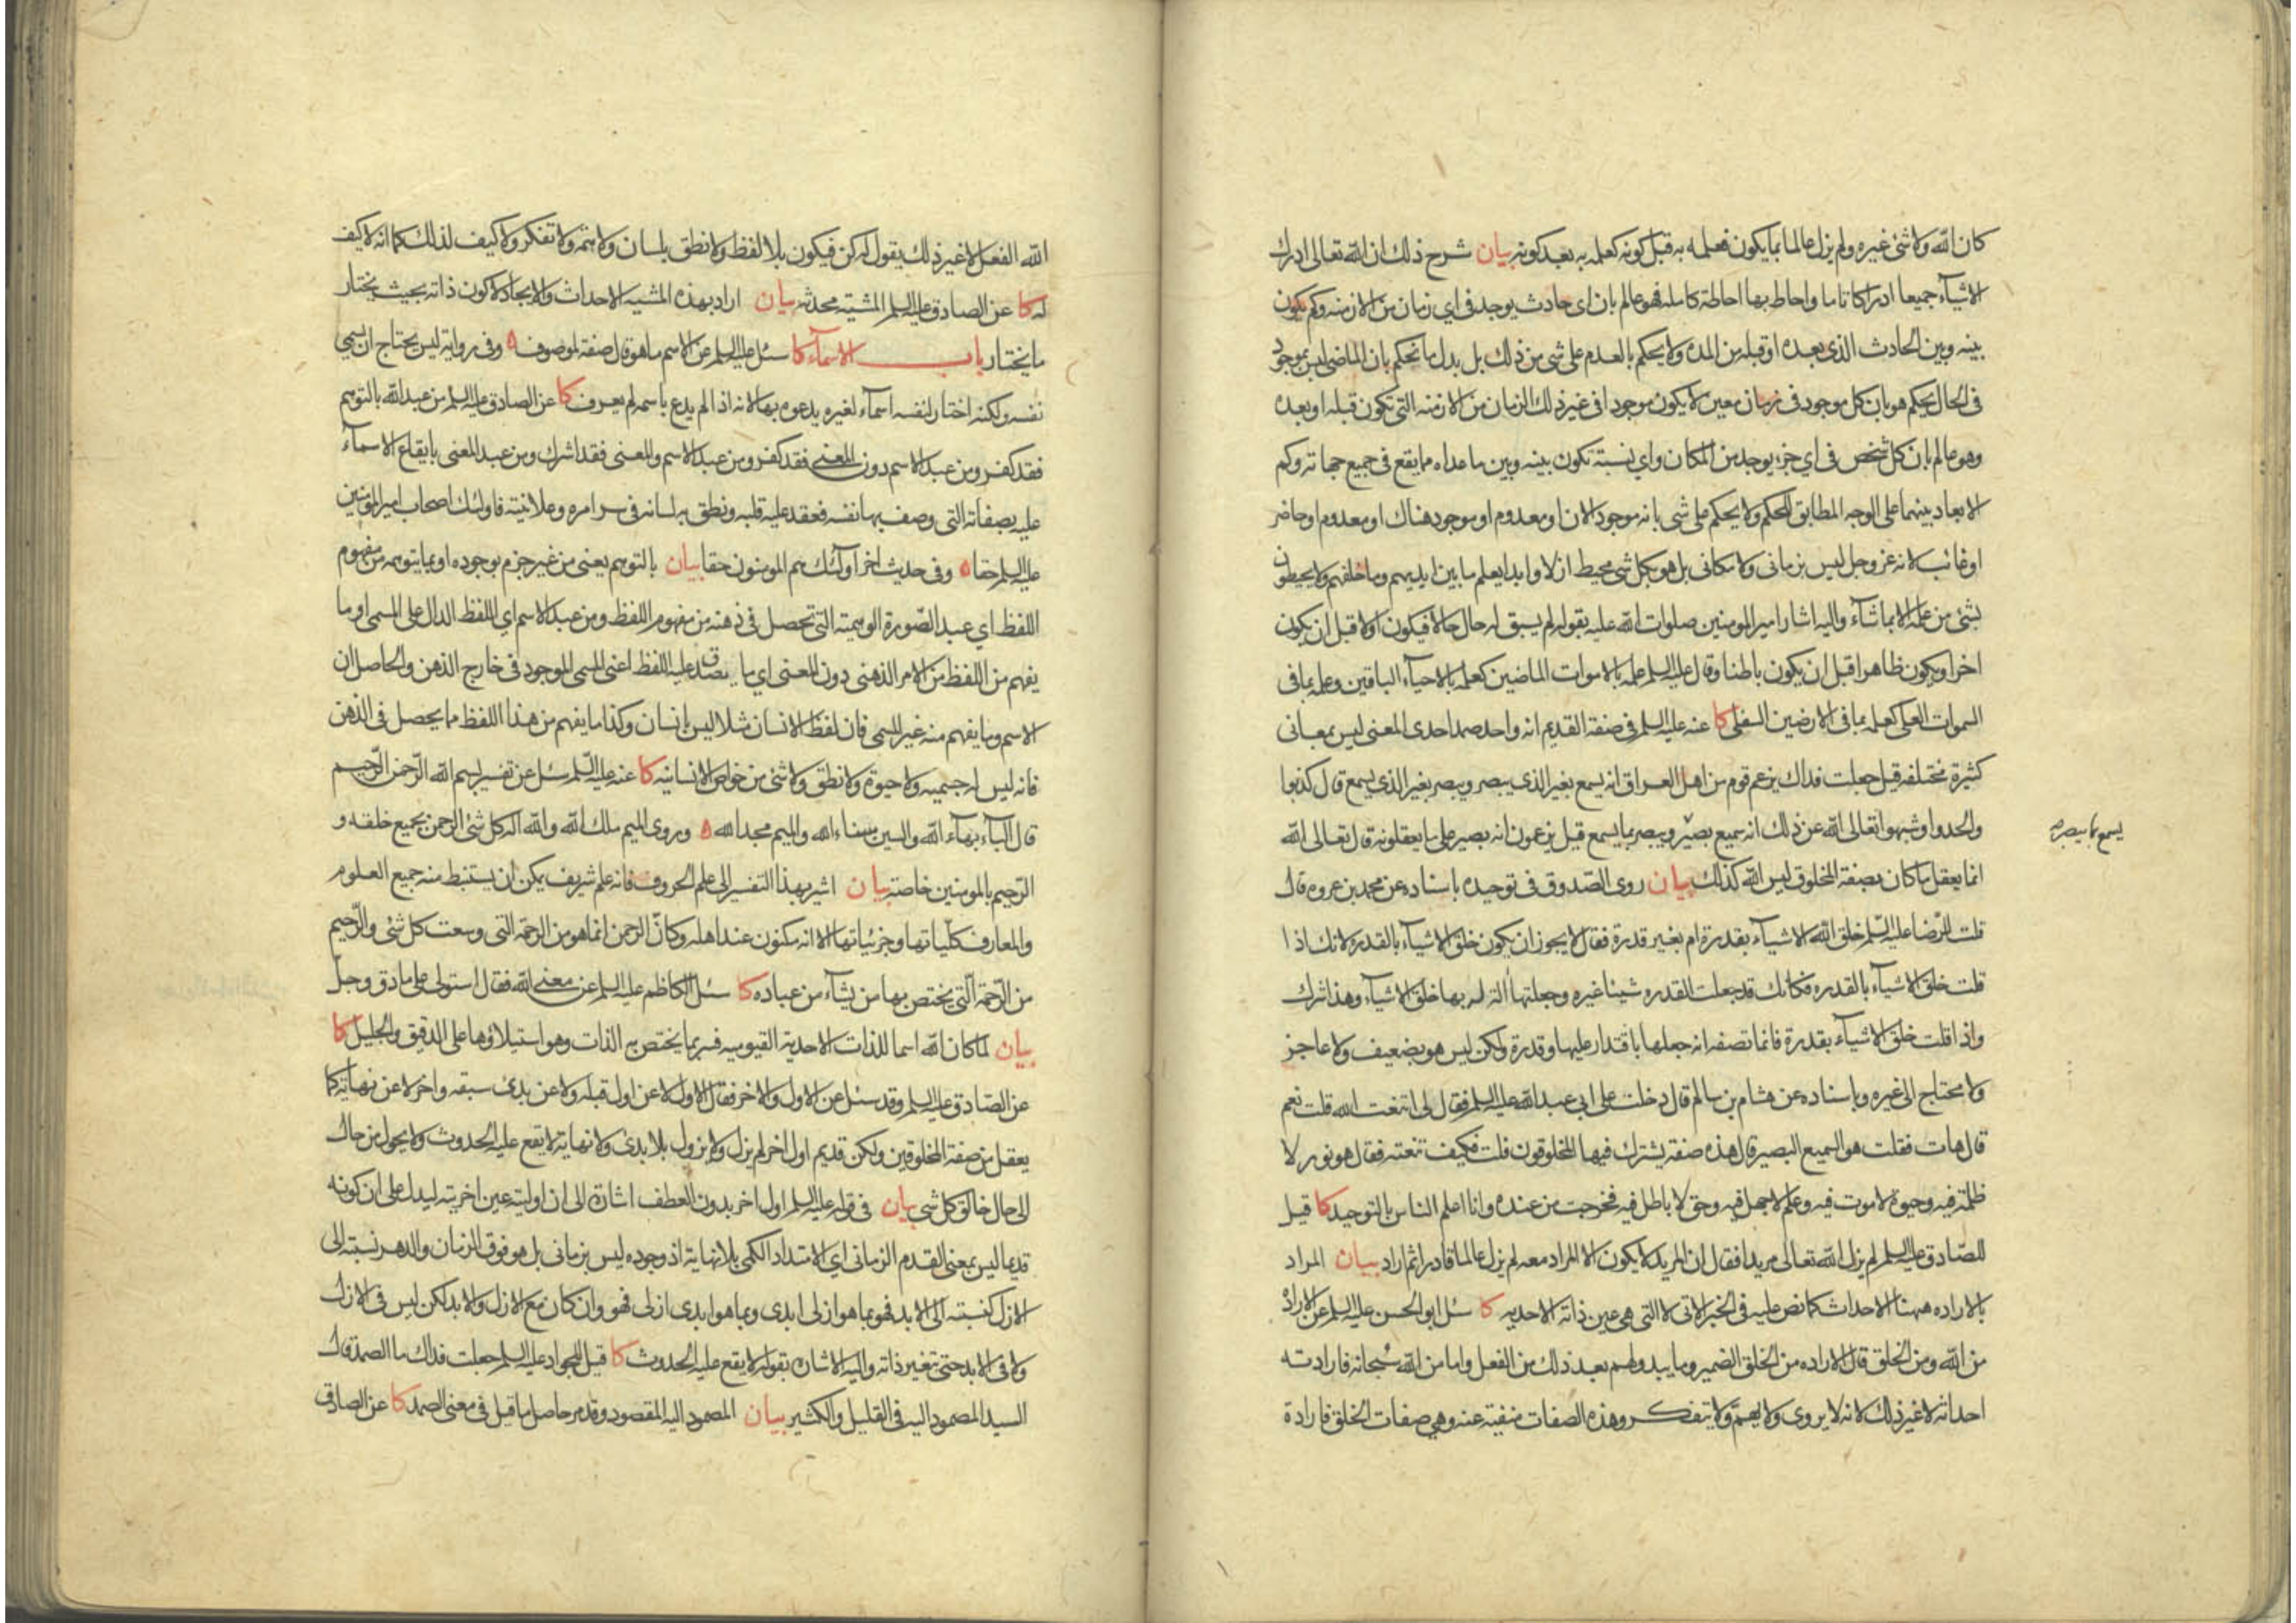 كان الله ولا شئ غيره ولم يزل عالما بما يكون فعلمه به قبل كونه كعلمه به بعد كونه بيان شرح ذلك ان الله تعالى ادرك
الاشيآء جميعا ادراكا تاما واحاط بها احاطة كاملة فهو عالم بان اى حادث يوجد فى اي زمان من الازمنه وكم يكون
بينه وبين الحادث الذى بعده او قبله من المدة ولا يحكم بالعدم على شى من ذلك بل بدل ما نحكم بان الماضى ليس بموجود
فى الحال يحكم هو بان كل موجود فى زمان معين لا يكون موجودا فى غير ذلك الزمان من الازمنه التى تكون قبله او بعده
وهو عالم بان كل شخص فى اي جزء يوجد من المكان واي نسبته تكون بينه وبين ما عداه مما يقع فى جميع جهاته وكم
الابعاد بينهما على الوجه المطابق للحكم ولا يحكم على شى بانه موجود الان او معدوم او موجود هناك او معدوم او حاضر
او غائب لانه عز وجل ليس بزمانى ولا مكانى بل هو بكل شى محيط ازلا وابدا يعلم ما بين ايديهم وما خلفهم ولا يحيطون
بشئ من علمه الا بما شآء واليه اشار امير المومنين صلوات الله عليه بقوله لم يسبق له حال حالا فيكون اولا قبل ان يكون
اخرا ويكون ظاهرا قبل ان يكون باطنا وقال عليه السلم علمه بالاموات الماضين كعلمه بالاحيآء الباقين وعلمه بما فى
السموات العلى كعلمه بما فى الارضين السفلى كا عنه عليه السلم فى صفة القديم انه واحد صمد احدى المعنى ليس بمعانى
كثيرة مختلفه قيل جعلت فداك يزعم قوم من اهل العراق انه يسمع بغير الذى يبصر ويبصر بغير الذى يسمع قال كذبوا
والحدوا وشبهوا تعالى الله عن ذلك انه سميع بصير ويبصر بما يسمع قيل يزعمون انه بصير على ما يعقلونه قال تعالى الله
يسمع بما يبصر
انما يعقل ما كان بصفة المخلوق ليس الله كذلك بيان روى الصدوق فى توحيده باسناده عن محمد بن عروه قال
قلت للرضا عليه السلم خلق الله الاشيآء بقدرة ام بغير قدرة فقال لا يجوز ان يكون خلق الاشيآء بالقدره لانك اذا
قلت خلق الاشيآء بالقدره فكانك قد جعلت القدره شيئا غيره وجعلتها آلة له بها خلق الاشيآء وهذا شرك
واذا قلت خلق الاشيآء بقدرة فانما تصفه انه جعلها باقتدار عليها وقدرة ولكن ليس هو بضعيف ولا عاجز
ولا محتاج الى غيره وباسناده عن هشام بن سالم قال دخلت على ابى عبد الله عليه السلم فقال لى اتنعت الله قلت نعم
قال هات فقلت هو السميع البصير قال هذه صفة يشترك فيها المخلوقون قلت فكيف تنعته فقال هو نور لا
ظلمة فيه وحيوة لا موت فيه وعلم لا جهل فيه وحق لا باطل فيه فخرجت من عنده وانا اعلم الناس بالتوحيد كا قيل
للصادق عليه السلم لم يزل الله تعالى مريدا فقال ان المريد لا يكون الا المراد معه لم يزل عالما قادرا ثم اراد بيان المراد
بالاراده ههنا الاحداث كما نص عليه فى الخبر الاتى لا التى هى عين ذاته الاحديه كا سئل ابو الحسن عليه السلم عن الارادة
من الله ومن الخلق قال الاراده من الخلق الضمير وما يبدو لهم بعد ذلك من الفعل واما من الله سبحانه فارادته
احداثه لا غير ذلك لانه لا يروى ولا يهم ولا يتفكر وهذه الصفات منفية عنه وهي صفات الخلق فارادة
الله الفعل لا غير ذلك يقول له كن فيكون بلا لفظ ولا نطق بلسان ولا همة ولا تفكر ولا كيف لذلك كما انه لا كيف
له كا عن الصادق عليه السلم المشيته محدثه بيان اراد بهذه المشيه الاحداث والايجاد لا كون ذاته بحيث يختار
ما يختار باب الاسمآء كا سئل عليه السلم عن الاسم ما هو قال صفة لموصوف ه وفى روايه ليس يحتاج ان يسمى
نفسه ولكنه اختار لنفسه اسمآء لغيره يدعوه بها لانه اذا لم يدع باسمه لم يعرف كا عن الصادق عليه السلم من عبد الله بالتوهم
فقد كفر ومن عبد الاسم دون المعنى فقد كفر ومن عبد الاسم والمعنى فقد اشرك ومن عبد المعنى بايقاع الاسمآء
عليه بصفاته التى وصف بها نفسه فعقد عليه قلبه ونطق به لسانه فى سرامره وعلانيته فاولئك اصحاب امير المومنين
عليه السلم حقا ه وفى حديث اخر اولئك هم المومنون حقا بيان بالتوهم يعنى من غير جزم بوجوده او بما يتوهمه من مفهوم
اللفظ اي عبد الصورة الوهمية التى تحصل فى ذهنه من مفهوم اللفظ ومن عبد الاسم اي اللفظ الدال على المسمى او ما
يفهم من اللفظ من الامر الذهنى دون المعنى اي ما يصدق عليه اللفظ اعنى المسمى الموجود فى خارج الذهن والحاصل ان
الاسم وما يفهم منه غير المسمى فان لفظ الانسان مثلا ليس بانسان وكذا ما يفهم من هذا اللفظ مما يحصل فى الذهن
فانه ليس له جسميه ولا حيوة ولا نطق ولا شئ من خواص الانسانيه كا عنه عليه السلم سئل عن تفسير بسم الله الرحمن الرحيم
قال البآء بهآء الله والسين سناء الله والميم مجد الله ه وروى الميم ملك الله والله اله كل شئ الرحمن بجميع خلقه و
الرحيم بالمومنين خاصة بيان اشير بهذا التفسير الى علم الحروف فانه علم شريف يمكن ان يستنبط منه جميع العلوم
والمعارف كلياتها وجزئياتها الا انه مكنون عند اهله وكان الرحمن انما هو من الرحمة التى وسعت كل شئ والرحيم
من الرحمة التى يختص بها من يشآء من عباده كا سئل الكاظم عليه السلم عن معنى الله فقال استولى على ما دق وجل
بيان لما كان الله اسما للذات الاحدية القيوميه فسر بما يختص به الذات وهو استيلاؤها على الدقيق والجليل كا
عن الصادق عليه السلم وقد سئل عن الاول والاخر فقال الاول لا عن اول قبله ولا عن بدئ سبقه واخر لا عن نهاية كما
يعقل من صفة المخلوقين ولكن قديم اول اخر لم يزل ولا يزول بلا بدئ ولا نهاية لا يقع عليه الحدوث ولا يحول من حال
الى حال خالق كل شى بيان فى قوله عليه السلم اول اخر بدون العطف اشارة الى ان اوليته عين اخريته ليدل على ان كونه
قديما ليس بمعنى القدم الزمانى اي الامتداد الكمى بلا نهاية اذ وجوده ليس بزمانى بل هو فوق الزمان والدهر نسبته الى
الازل كنسبته الى الابد فهو بما هو ازلى ابدى وبما هو ابدى ازلى فهو وان كان مع الازل والابد لكن ليس فى الازل
ولا فى الابد حتى تتغير ذاته واليه الاشاره بقوله لا يقع عليه الحدوث كا قيل للجواد عليه السلم جعلت فداك ما الصمد قال
السيد المصمود اليه فى القليل والكثير بيان المصمود اليه المقصود وقد مر حاصل ما قيل فى معنى الصمد كا عن الصادق